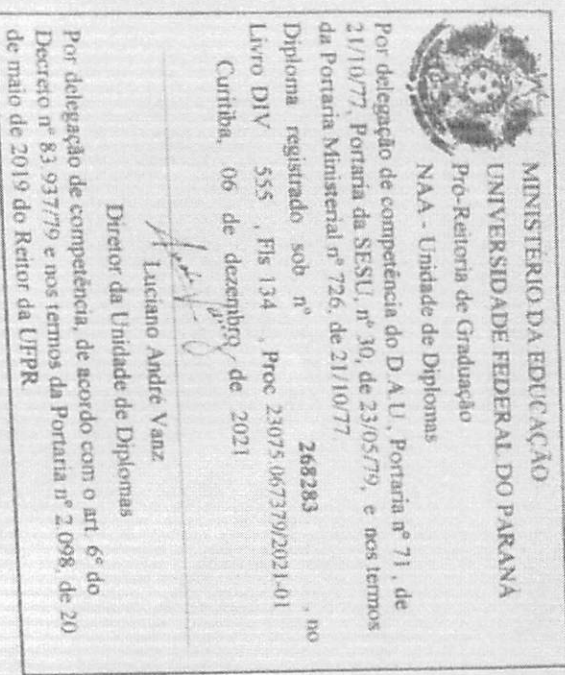 MINISTÉRIO DA EDUCAÇÃO
UNIVERSIDADE FEDERAL DO PARANÁ
Pró-Reitoria de Graduação
NAA - Unidade de Diplomas
Por delegação de competência do D.A.U., Portaria nº 71, de
21/10/77, Portaria da SESU, nº 30, de 23/05/79, e nos termos
da Portaria Ministerial nº 726, de 21/10/77
Diploma registrado sob nº 268283 , no
Livro DIV 555 , Fls 134 , Proc 23075.067379/2021-01
Curitiba, 06 de dezembro de 2021
Luciano André Vanz
Diretor da Unidade de Diplomas
Por delegação de competência, de acordo com o art. 6º do
Decreto nº 83.937/79 e nos termos da Portaria nº 2.098, de 20
de maio de 2019 do Reitor da UFPR